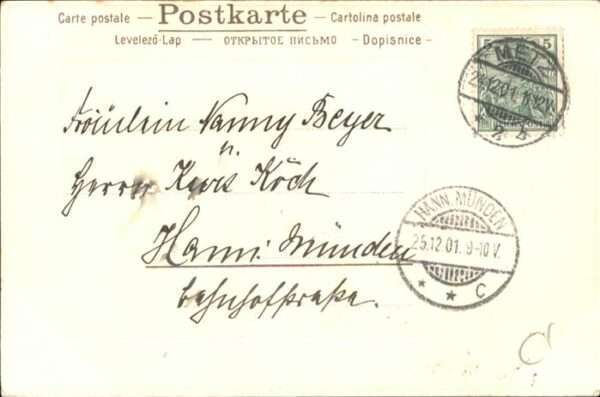 Carte postale – Postkarte – Cartolina postale
Levelező-Lap — ОТКРЫТОЕ ПИСЬМО – Dopisnice –
5 5
METZ
24.12.01. 11-12V.
Fräulein Nanny Beyer
u.
Herrn Köch
HANN. MÜNDEN
25.12.01. 9-10 V.
* * C
Hann. Münden
Bahnhofstraße.